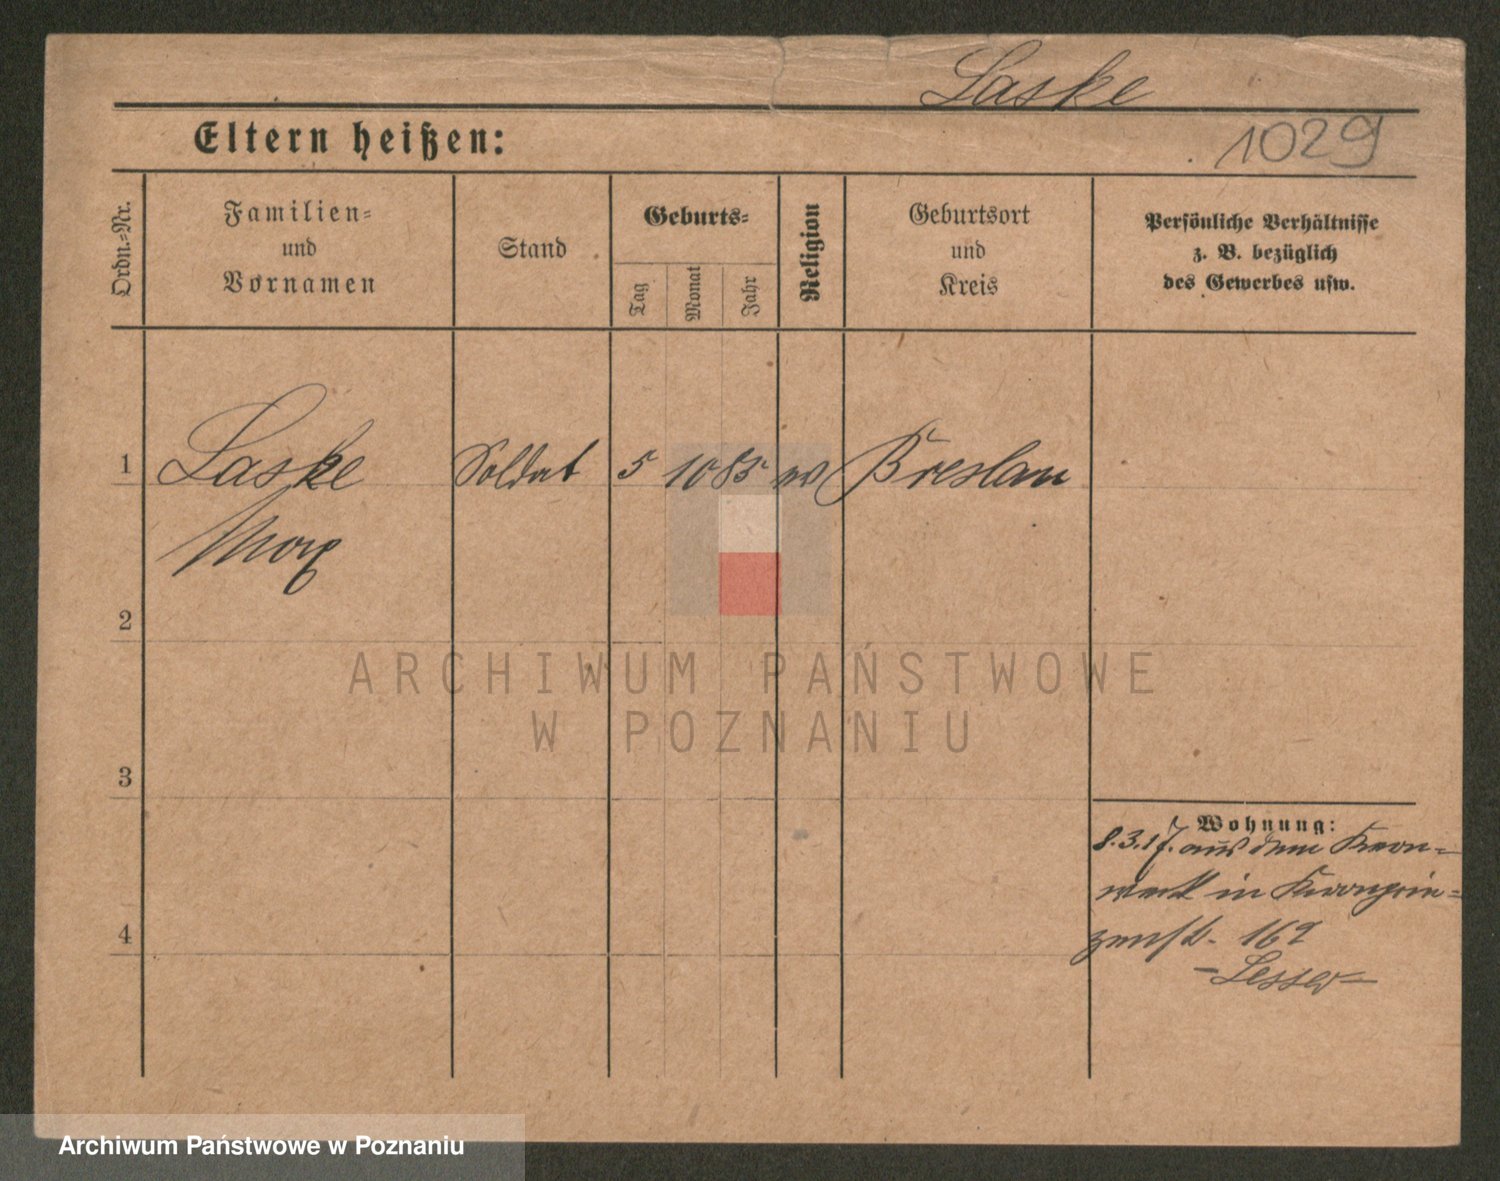 Laske
Eltern heißen:
1029
Ordn.=Nr.
Familien=
und
Vornamen
Stand
Geburts=
Tag
Monat
Jahr
Religion
Geburtsort
und
Kreis
Persönliche Verhältnisse
z. B. bezüglich
des Gewerbes usw.
1
Laske
Soldat
5
10
85
Breslau
Max
2
ARCHIWUM PAŃSTWOWE
W POZNANIU
3
Wohnung:
8.3.17. aus dem Kern=
werk in Kronprin=
zenstr. 16
-Lesser-
4
Archiwum Państwowe w Poznaniu